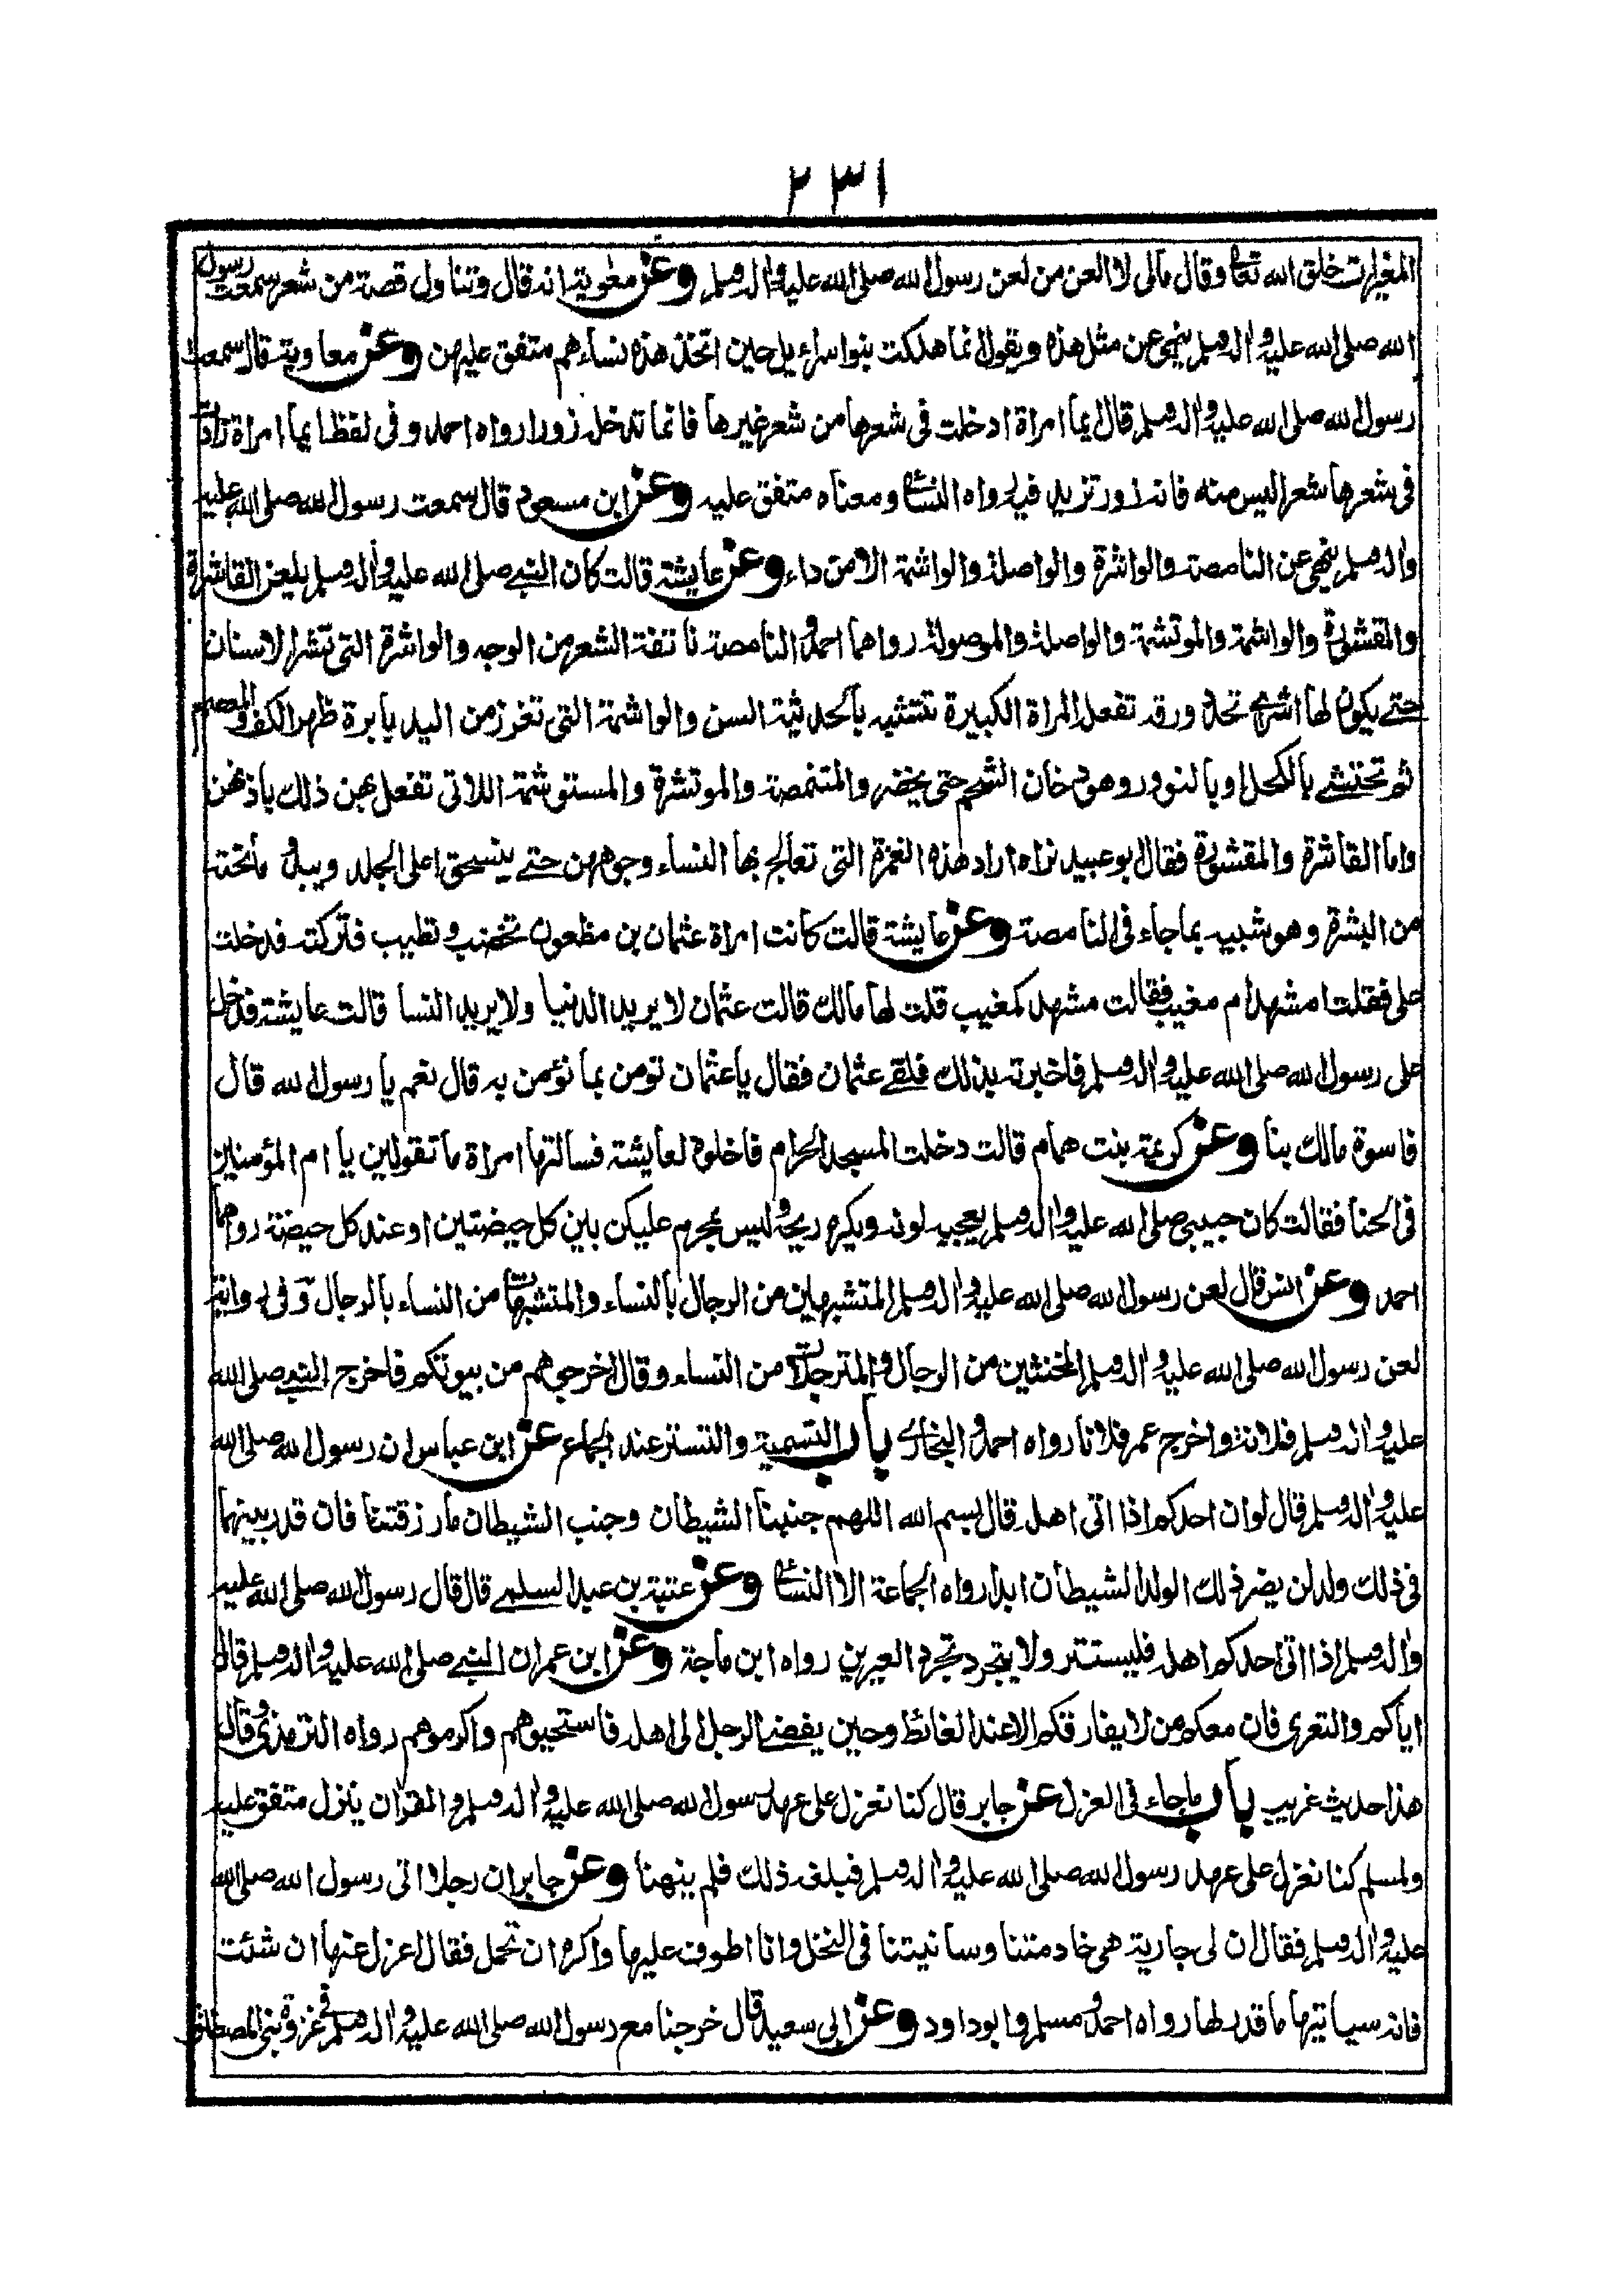 ٢٣١
المغيرات خلق الله تعالى وقال مالى لا العن من لعن رسول الله صلى الله عليه واله وسلم وعن معوية انه قال وتناول قصة من شعر سمعت رسول
الله صلى الله عليه واله وسلم ينهى عن مثل هذه ويقول انما هلكت بنو اسراءيل حين اتخذ هذه نساءهم متفق عليهن وعن معاوية قال سمعت
رسول الله صلى الله عليه واله وسلم قال ايما امراة ادخلت فى شعرها من شعر غيرها فانما تدخله زورا رواه احمد وفى لفظ ايما امراة زادت
فى شعرها شعرا ليس منه فانه زور تزيد فيه رواه النسائى ومعناه متفق عليه وعن ابن مسعود قال سمعت رسول الله صلى الله عليه
واله وسلم ينهى عن النامصة والواشرة والواصلة والواشمة الا من داء وعن عايشة قالت كان النبى صلى الله عليه واله وسلم يلعن القاشرة
والمقشورة والواشمة والموتشمة والواصلة والموصولة رواهما احمد والنامصة ناتفة الشعر من الوجه والواشرة التى تشر الاسنان
حتى يكون لها اشر اى تحدد ورقة تفعله المراة الكبيرة تتشبه بالحديثة السن والواشمة التى تغرز من اليد بابرة ظهر الكف والمعصم
ثم تحتشى بالكحل او بالنوور وهو دخان الشحم حتى يخضر والمتنمصة والموتشرة والمستوشمة اللاتى تفعل بهن ذلك باذنهن
واما القاشرة والمقشورة فقال ابو عبيد نراه اراد هذه الغمرة التى تعالج بها النساء وجوههن حتى ينسحق اعلى الجلد ويبدو ماتحته
من البشرة وهو شبيه بماجاء فى النامصة وعن عايشة قالت كانت امراة عثمان بن مظعون تخضب وتطيب فتركته فدخلت
على فقلت امشهد ام مغيب فقالت مشهد كمغيب قلت لها مالك قالت عثمان لا يريد الدنيا ولا يريد النسا قالت عايشة فدخل
على رسول الله صلى الله عليه واله وسلم فاخبرته بذلك فلقى عثمان فقال يا عثمان تومن بما نؤمن به قال نعم يا رسول الله قال
فاسوة مالك بنا وعن كريمة بنت همام قالت دخلت المسجد الحرام فاخلوه لعايشة فسالتها امراة ما تقولين يا ام المؤمنين
فى الحنا فقالت كان حبيبى صلى الله عليه واله وسلم يعجبه لونه ويكره ريحه وليس بمحرم عليكن بين كل حيضتين او عند كل حيضة رواهما
احمد وعن انس قال لعن رسول الله صلى الله عليه واله وسلم المتشبهين من الرجال بالنساء والمتشبهات من النساء بالرجال وفى رواية
لعن رسول الله صلى الله عليه واله وسلم المخنثين من الرجال والمترجلات من النساء وقال اخرجوهم من بيوتكم فاخرج النبى صلى الله
عليه واله وسلم فلانة واخرج عمر فلانا رواه احمد والبخارى باب التسمية والتستر عند الجماع عن ابن عباس ان رسول الله صلى الله
عليه واله وسلم قال لو ان احدكم اذا اتى اهله قال بسم الله اللهم جنبنا الشيطان وجنب الشيطان مارزقتنا فان قدر بينهما
فى ذلك ولد لن يضر ذلك الولد الشيطان ابدا رواه الجماعة الا النسائى وعن عتبة بن عبد السلمى قال قال رسول الله صلى الله عليه
واله وسلم اذا اتى احدكم اهله فليستتر ولا يتجرد تجرد العيرين رواه ابن ماجة وعن ابن عمر ان النبى صلى الله عليه واله وسلم قال
اياكم والتعرى فان معكم من لا يفارقكم الا عند الغائط وحين يفضى الرجل الى اهله فاستحيوهم واكرموهم رواه الترمذى وقال
هذا حديث غريب باب ماجاء فى العزل عن جابر قال كنا نعزل على عهد رسول الله صلى الله عليه واله وسلم والقران ينزل متفق عليه
ولمسلم كنا نعزل على عهد رسول الله صلى الله عليه واله وسلم فبلغه ذلك فلم ينهنا وعن جابر ان رجلا اتى رسول الله صلى الله
عليه واله وسلم فقال ان لى جارية هى خادمتنا وسانيتنا فى النخل وانا اطوف عليها واكره ان تحمل فقال اعزل عنها ان شئت
فانه سياتيها ماقدر لها رواه احمد ومسلم وابو داود وعن ابى سعيد قال خرجنا مع رسول الله صلى الله عليه واله وسلم فى غزوة بنى المصطلق